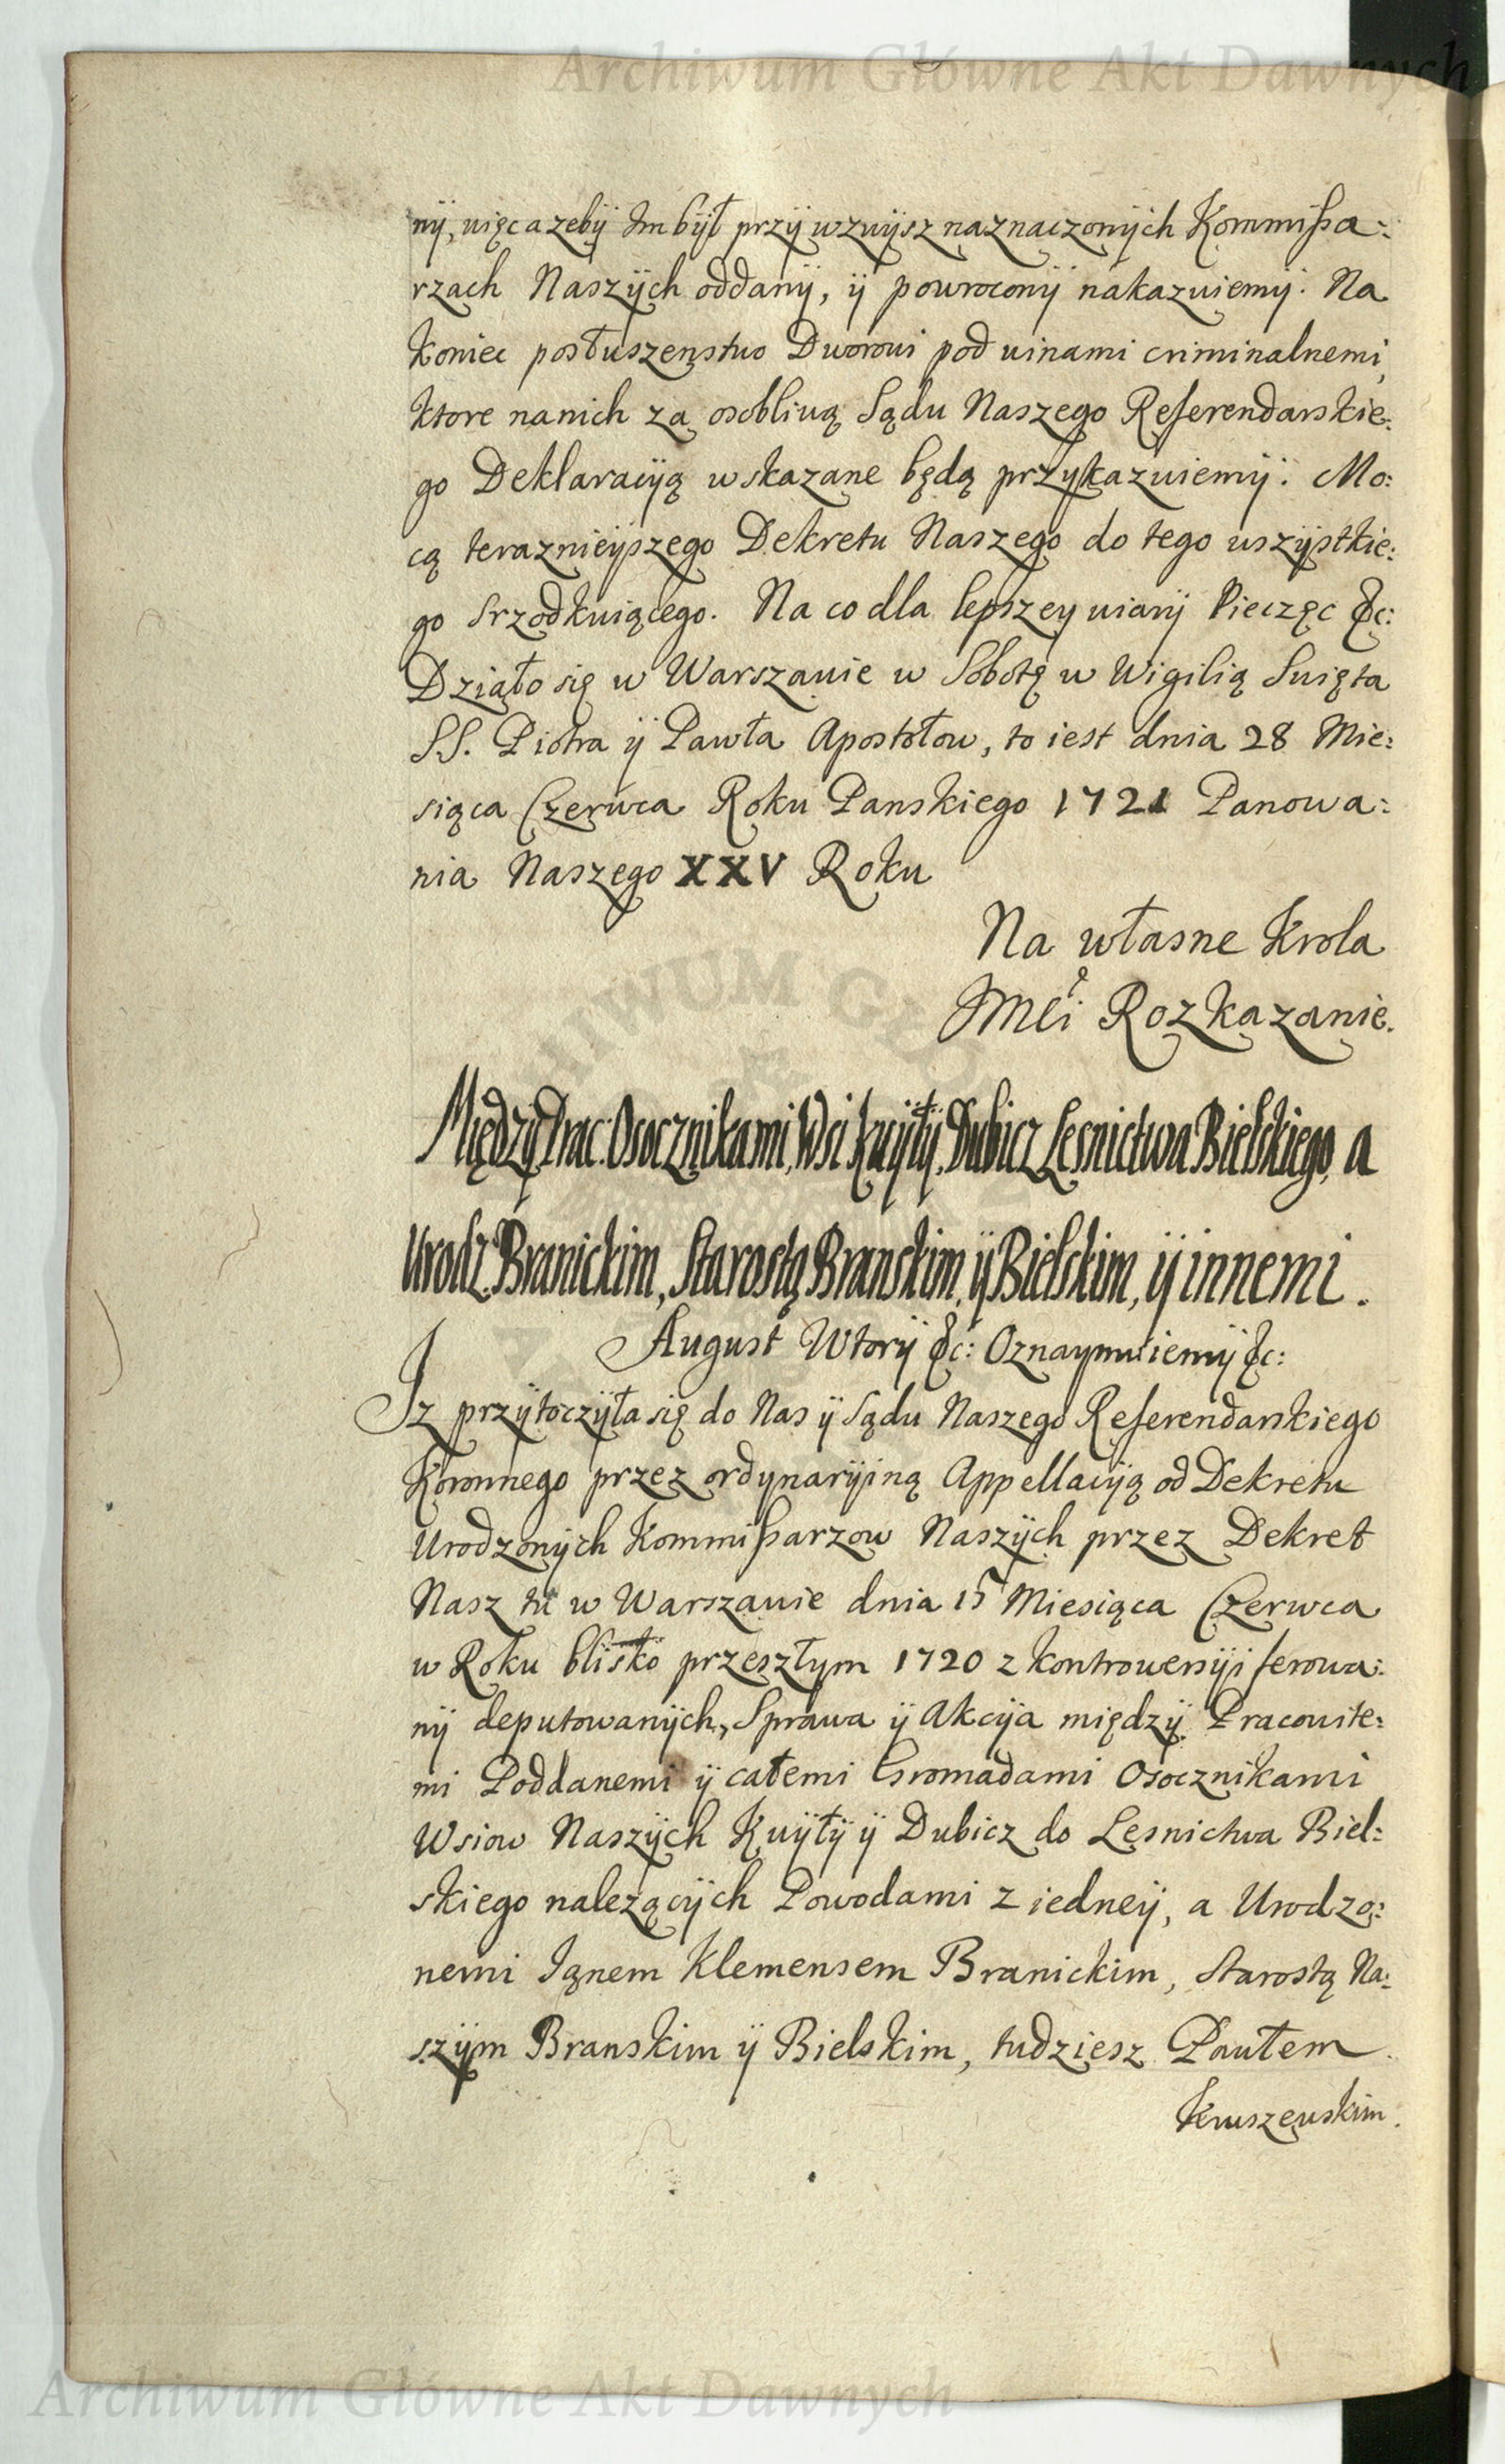 Archiwum Główne Akt Dawnych
nÿ, więc azebÿ Im bÿł przÿ wzwÿsz naznaczonÿch Kommißa:
rzach Naszÿch oddanÿ, ÿ powroconÿ nakazuiemÿ. Na
koniec posłuszenstwo Dworowi pod winami criminalnemi,
ktore na nich za osobliwą Sądu Naszego Referendarskie:
go Deklaracÿą wskazane będą przykazuiemÿ. Mo:
cą teraznieÿszego Dekretu Naszego do tego wszÿstkie:
go srzodkuiącego. Na co dla lepszey wiarÿ Pieczęc &c:
Działo się w Warszawie w Sobotę w Wigilią Swięta
SS. Piotra ÿ Pawła Apostołow, to iest dnia 28 Mie:
siąca Czerwca Roku Panskiego 1721 Panowa:
nia Naszego XXV Roku
Na własne Krola
JMci Rozkazanie.
Międzÿ Prac: Osocznikami, Wsi Kuÿłÿ, Dubicz Lesnictwa Bielskiego, a
Urodz: Branickim, Starostą Branskim, ÿ Bielskim, ÿ innemi.
August Wtorÿ &c: Oznaymuiemÿ &c:
Iz przÿtoczÿła się do Nas ÿ Sądu Naszego Referendarskiego
Koronnego przez ordynarÿiną Appellacÿą od Dekretu
Urodzonÿch Kommißarzow Naszÿch przez Dekret
Nasz tu w Warszawie dnia 15 Miesiąca Czerwca
w Roku blisko przeszłym 1720 z kontrowersÿi ferowa:
nÿ deputowanÿch, Sprawa ÿ Akcÿa międzÿ Pracowite:
mi Poddanemi ÿ całemi Gromadami Osocznikami
Wsiow Naszÿch Kuÿłÿ ÿ Dubicz do Lesnictwa Biel:
skiego nalezącÿch Powodami z iedneÿ, a Urodzo:
nemi Janem Klemensem Branickim, Starostą Na:
szÿm Branskim ÿ Bielskim, tudziesz Pawłem
Kruszewskim.
Archiwum Główne Akt Dawnych